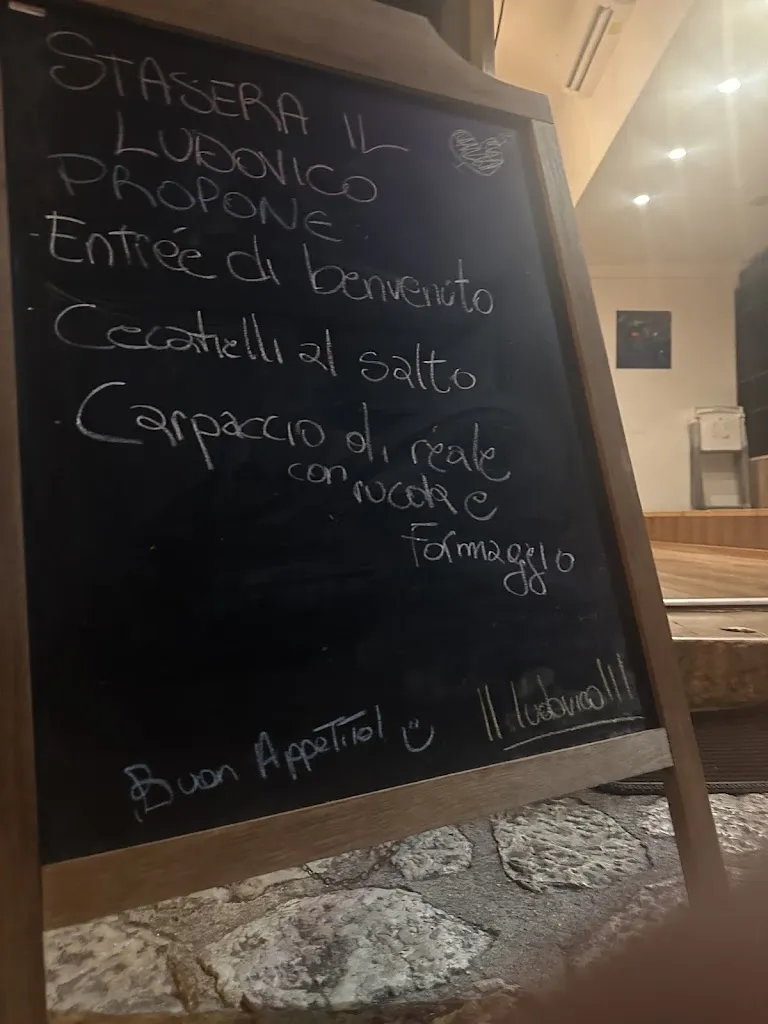 STASERA IL
LUDOVICO
PROPONE
- Entrée di benvenuto
- Cecatielli al salto
- Carpaccio di reale
con rucola e
Formaggio
Buon Appetito!
Il ludovico!!!